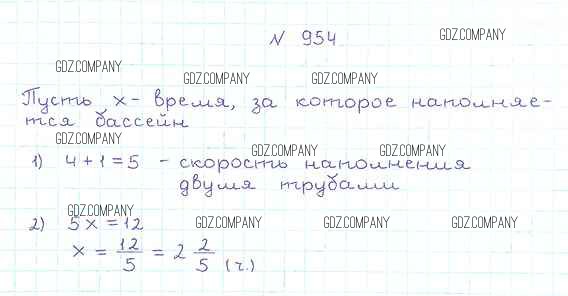 N 954
GDZ.COMPANY
GDZ.COMPANY
GDZ.COMPANY GDZ.COMPANY
Пусть x - время, за которое наполняе-
тся бассейн
GDZ.COMPANY
GDZ.COMPANY GDZ.COMPANY
1) 4 + 1 = 5 - скорость наполнения
двумя трубами
GDZ.COMPANY
2) 5x = 12
GDZ.COMPANY GDZ.COMPANY GDZ.COMPANY
x = 12/5 = 2 2/5 (ч.)